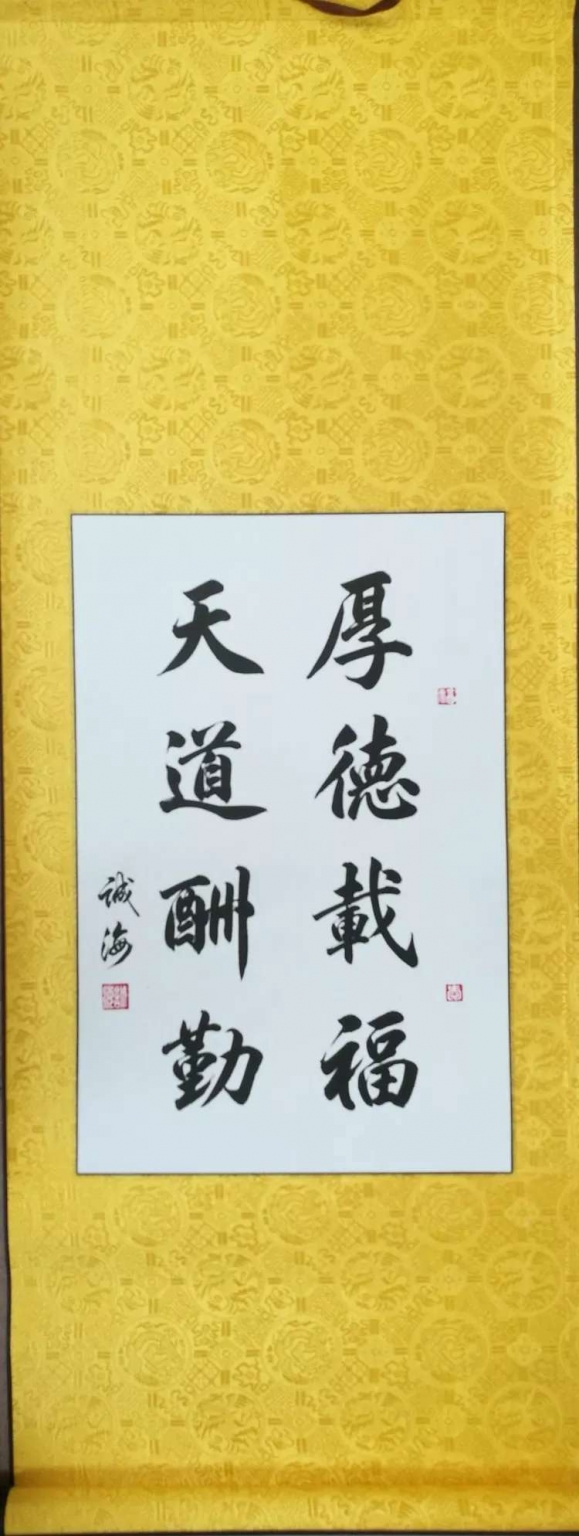 厚德載福
天道酬勤
誠海